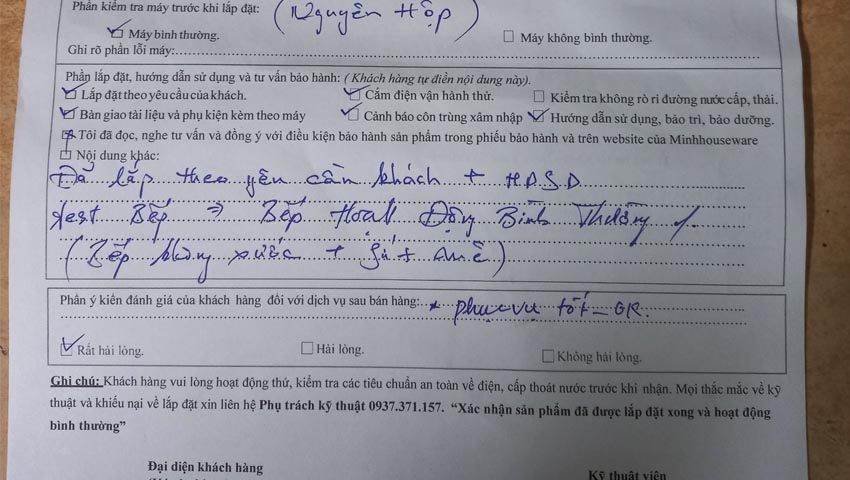 Phần kiểm tra máy trước khi lắp đặt: (Nguyên Hộp)
☑ Máy bình thường. ☐ Máy không bình thường.
Ghi rõ phần lỗi máy:
Phần lắp đặt, hướng dẫn sử dụng và tư vấn bảo hành: ( Khách hàng tự điền nội dung này).
☑ Lắp đặt theo yêu cầu của khách. ☑ Cắm điện vận hành thử. ☐ Kiểm tra không rò rỉ đường nước cấp, thải.
☑ Bàn giao tài liệu và phụ kiện kèm theo máy ☑ Cảnh báo côn trùng xâm nhập ☑ Hướng dẫn sử dụng, bảo trì, bảo dưỡng.
☑ Tôi đã đọc, nghe tư vấn và đồng ý với điều kiện bảo hành sản phẩm trong phiếu bảo hành và trên website của Minhhouseware
☐ Nội dung khác:
Đã lắp theo yêu cần khách + H.D.S.D
test Bếp ⇒ Bếp Hoạt Động Bình Thường
(Bếp không xước + mẻ)
Phần ý kiến đánh giá của khách hàng đối với dịch vụ sau bán hàng: * phục vụ tốt - OK.
☑ Rất hài lòng. ☐ Hài lòng. ☐ Không hài lòng.
Ghi chú: Khách hàng vui lòng hoạt động thử, kiểm tra các tiêu chuẩn an toàn về điện, cấp thoát nước trước khi nhận. Mọi thắc mắc về kỹ
thuật và khiếu nại về lắp đặt xin liên hệ Phụ trách kỹ thuật 0937.371.157. “Xác nhận sản phẩm đã được lắp đặt xong và hoạt động
bình thường”
Đại diện khách hàng
Kỹ thuật viên